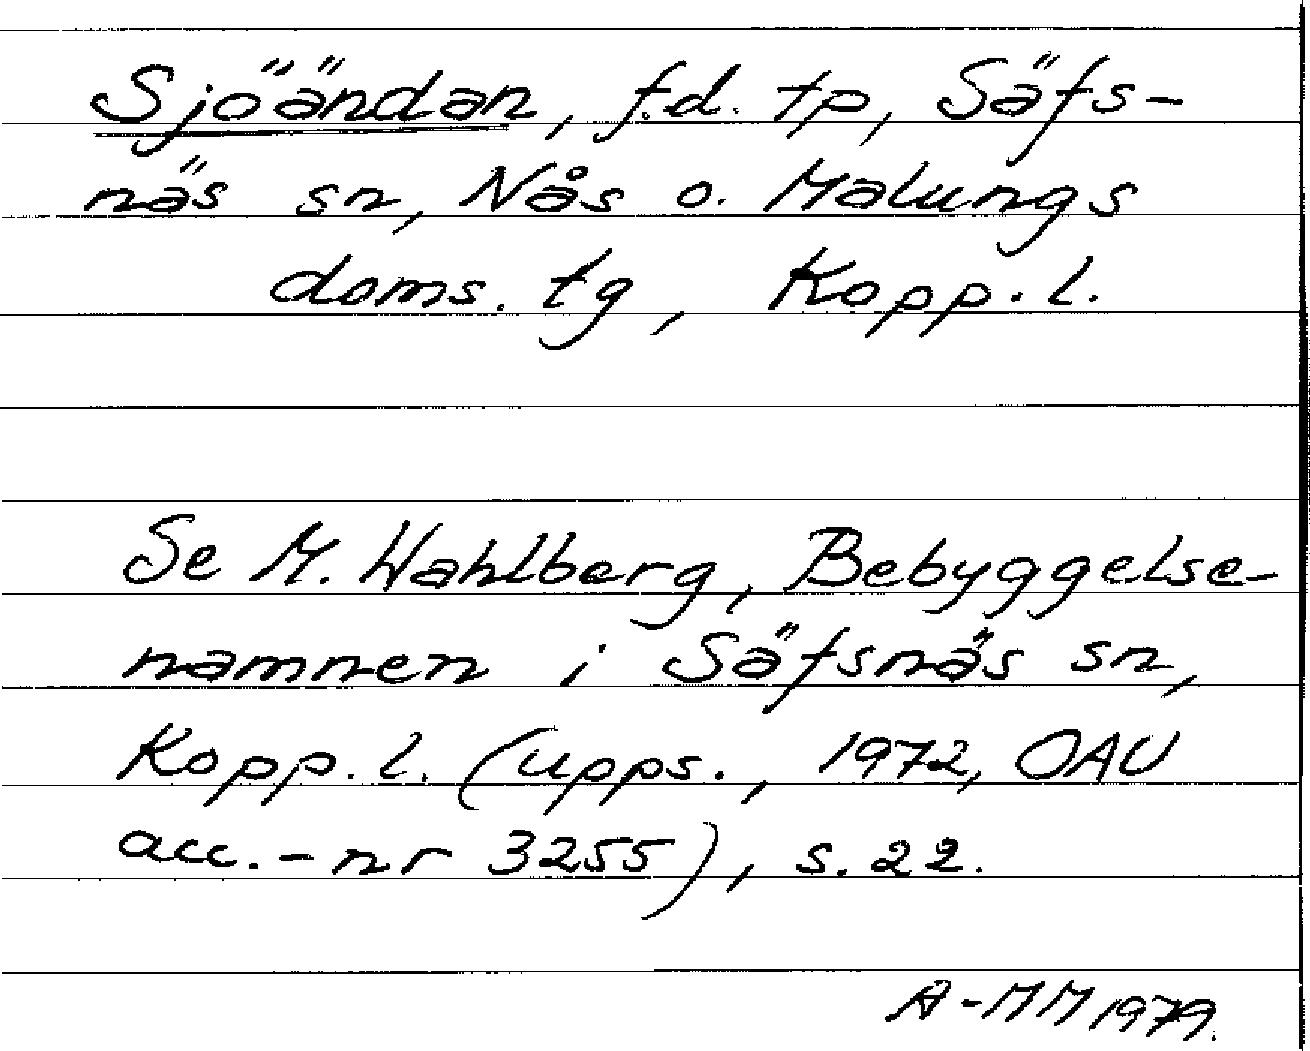 Sjöändan, f.d. tp, Säfs-
näs sn, Nås o. Malungs
doms. tg, Kopp. l.
Se M. Wahlberg, Bebyggelse-
namnen i Säfsnäs sn,
Kopp. l. (Upps., 1972, OAU
acc.-nr 3255), s. 22.
A-MM 1979.